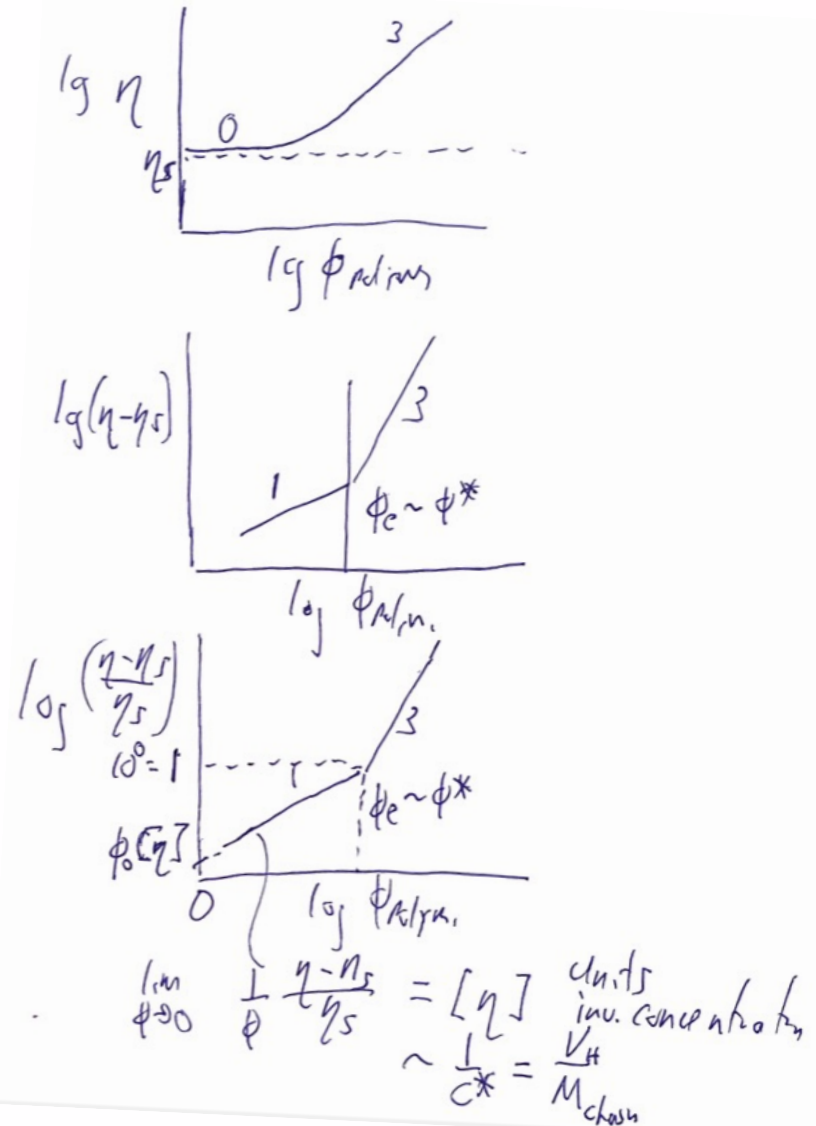 lg η
3
0
ηs
lg ϕ
lg(η-ηs)
1
3
ϕe ~ ϕ*
log ϕPolym.
log (η-ηs / ηs)
10⁰=1
1
3
ϕe ~ ϕ*
ϕ₀[η]
0
log ϕPolym.
lim ϕ→0 1/ϕ η-ηs/ηs = [η] units
inv. concentration
~ 1/c* = VH/Mchain